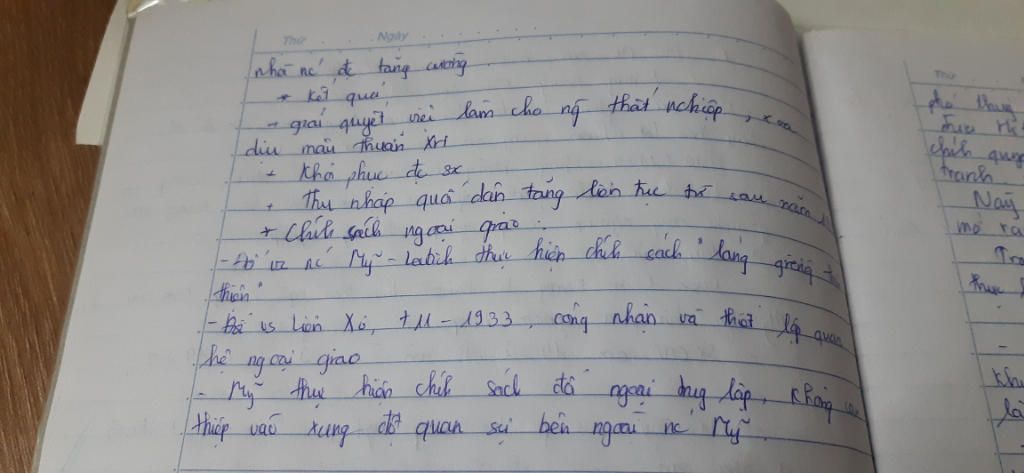 Thứ Ngày
nhà nc đc tăng cường
+ Kết quả
- giải quyết việc làm cho ng thất nghiệp, xoa
dịu mâu thuẫn XH
+ Khôi phục đc sx
+ Thu nhập quốc dân tăng liên tục từ sau năm
+ Chính sách ngoại giao :
- Đối vs nc Mỹ - Latinh thực hiện chính sách "láng giềng
thiện"
- Đối vs Liên Xô, t11 - 1933, công nhận và thiết lập quan
hệ ngoại giao
- Mỹ thực hiện chính sách đối ngoại trung lập, không can
thiệp vào xung đột quân sự bên ngoài nc Mỹ.
Thứ
chính quyền
tranh
Này
mở ra